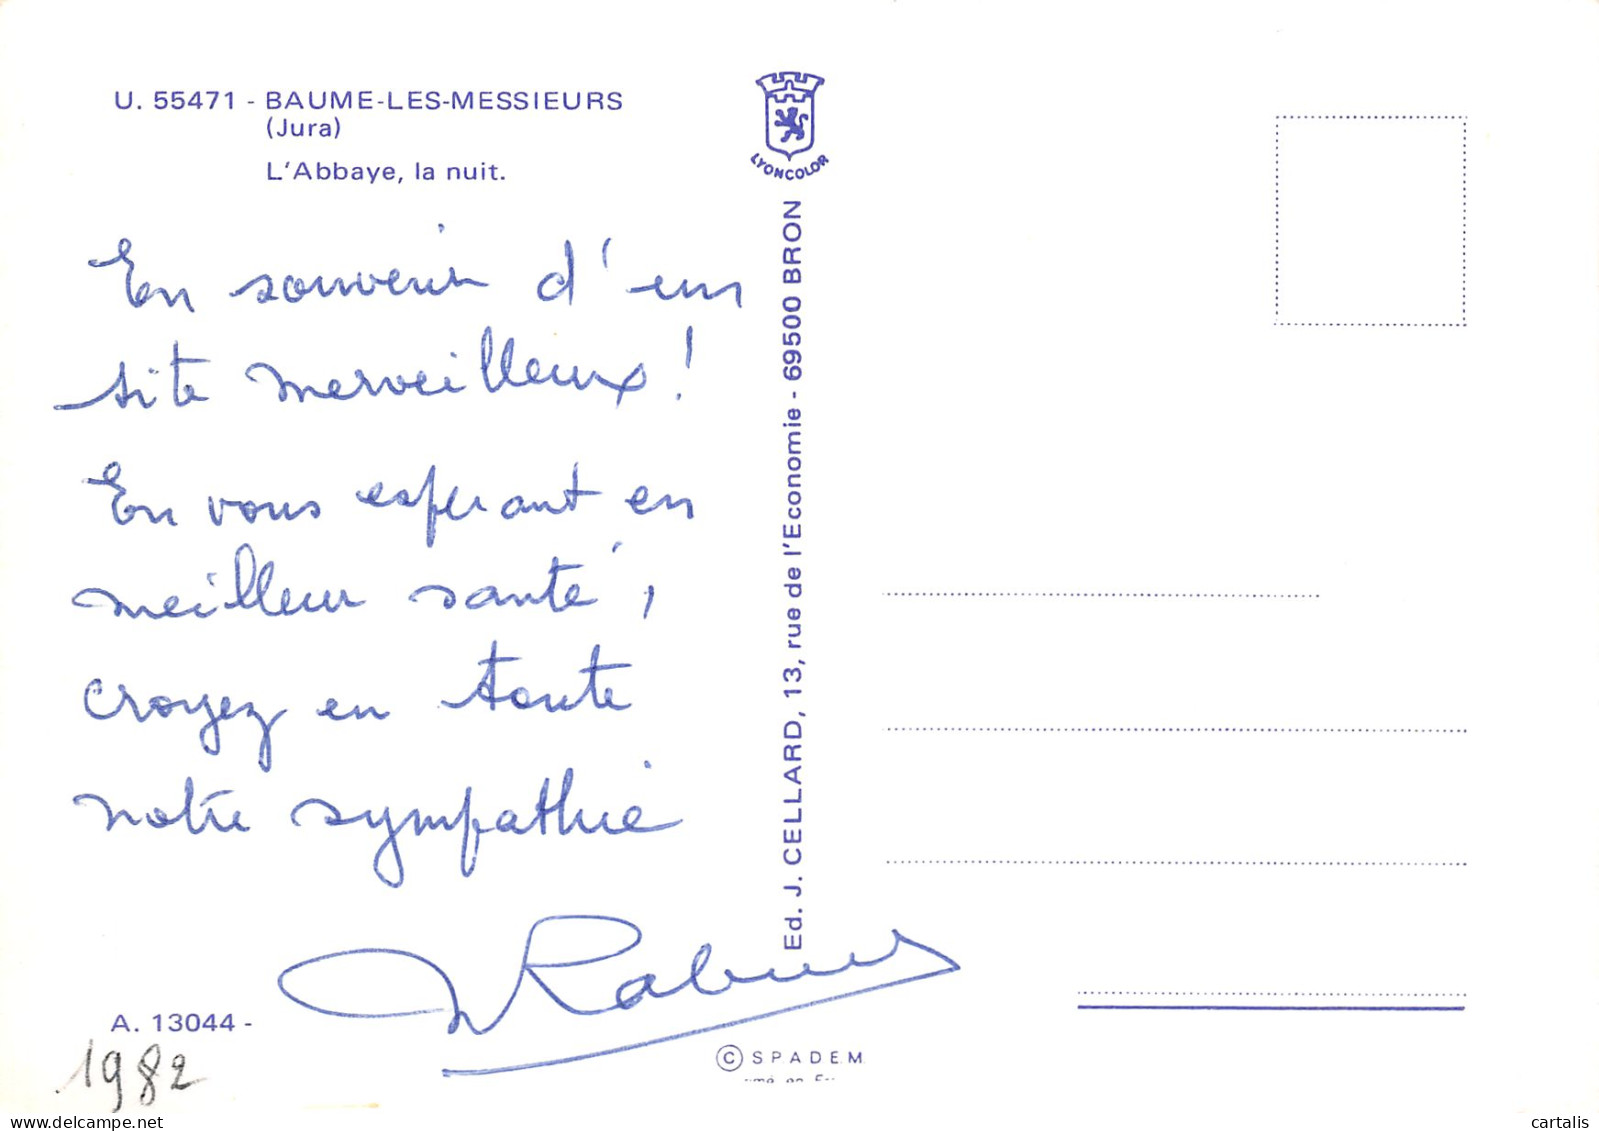 U. 55471 - BAUME-LES-MESSIEURS
(Jura)
L'Abbaye, la nuit.
En souvenir d'un
site merveilleux !
En vous esperant en
meilleur santé,
croyez en toute
notre sympathie
A. 13044 -
1982
LYONCOLOR
Ed. J. CELLARD, 13, rue de l'Economie - 69500 BRON
© SPADEM
cartalis